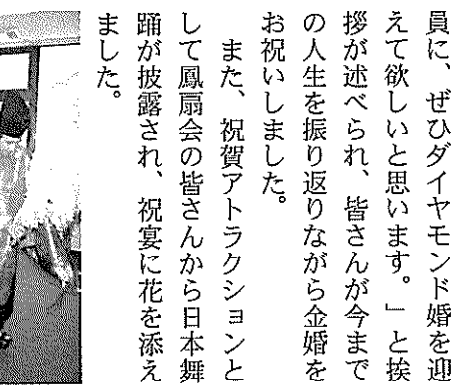 員に、ぜひダイヤモンド婚を迎
えて欲しいと思います。」と挨
拶が述べられ、皆さんが今まで
の人生を振り返りながら金婚を
お祝いしました。
また、祝賀アトラクションと
して鳳扇会の皆さんから日本舞
踊が披露され、祝宴に花を添え
ました。